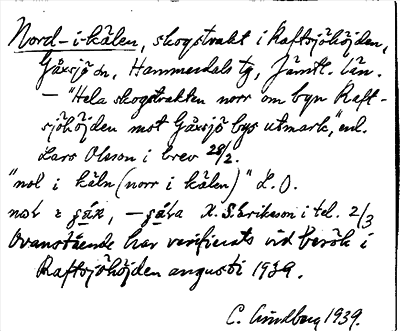 Nord-i-kälen, skogstrakt i Raftsjöhöjden,
Gåxsjö sn, Hammerdals tg, Jämtl. län.
— "Hela skogstrakten norr om byn Raft-
sjöhöjden mot Gåxsjö bys utmark," enl.
Lars Olsson i brev 28/2.
"nol i käln (norr i kälen)" L.O.
X. S. Eriksson i tel. 2/3
Ovanstående har verifierats vid besök i
Raftsjöhöjden augusti 1939.
C. Lindberg 1939.